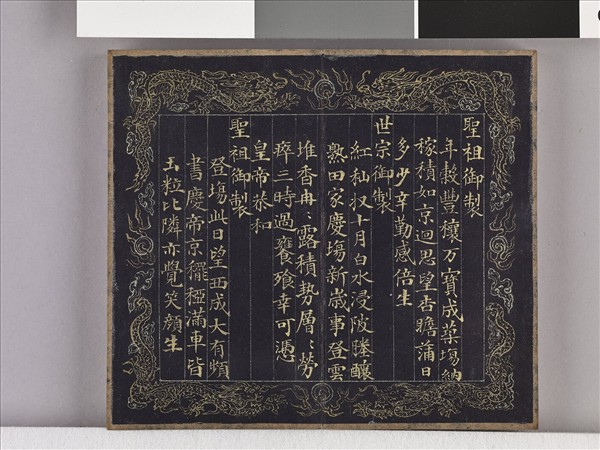 聖祖御製
年穀豐穰万寶成築場納
稼積如京迴思望杏瞻蒲日
多少辛勤感倍生
世宗御製
紅秈収十月白水浸陂塍釀
熟田家慶塲新歲事登雲
堆香冉〻露積勢層〻勞
瘁三時過饔飧幸可憑
皇帝恭和
聖祖御製
登塲此日望西成大有頻
書慶帝京䆉稏滿車皆
玉粒比隣亦覺笑顏生